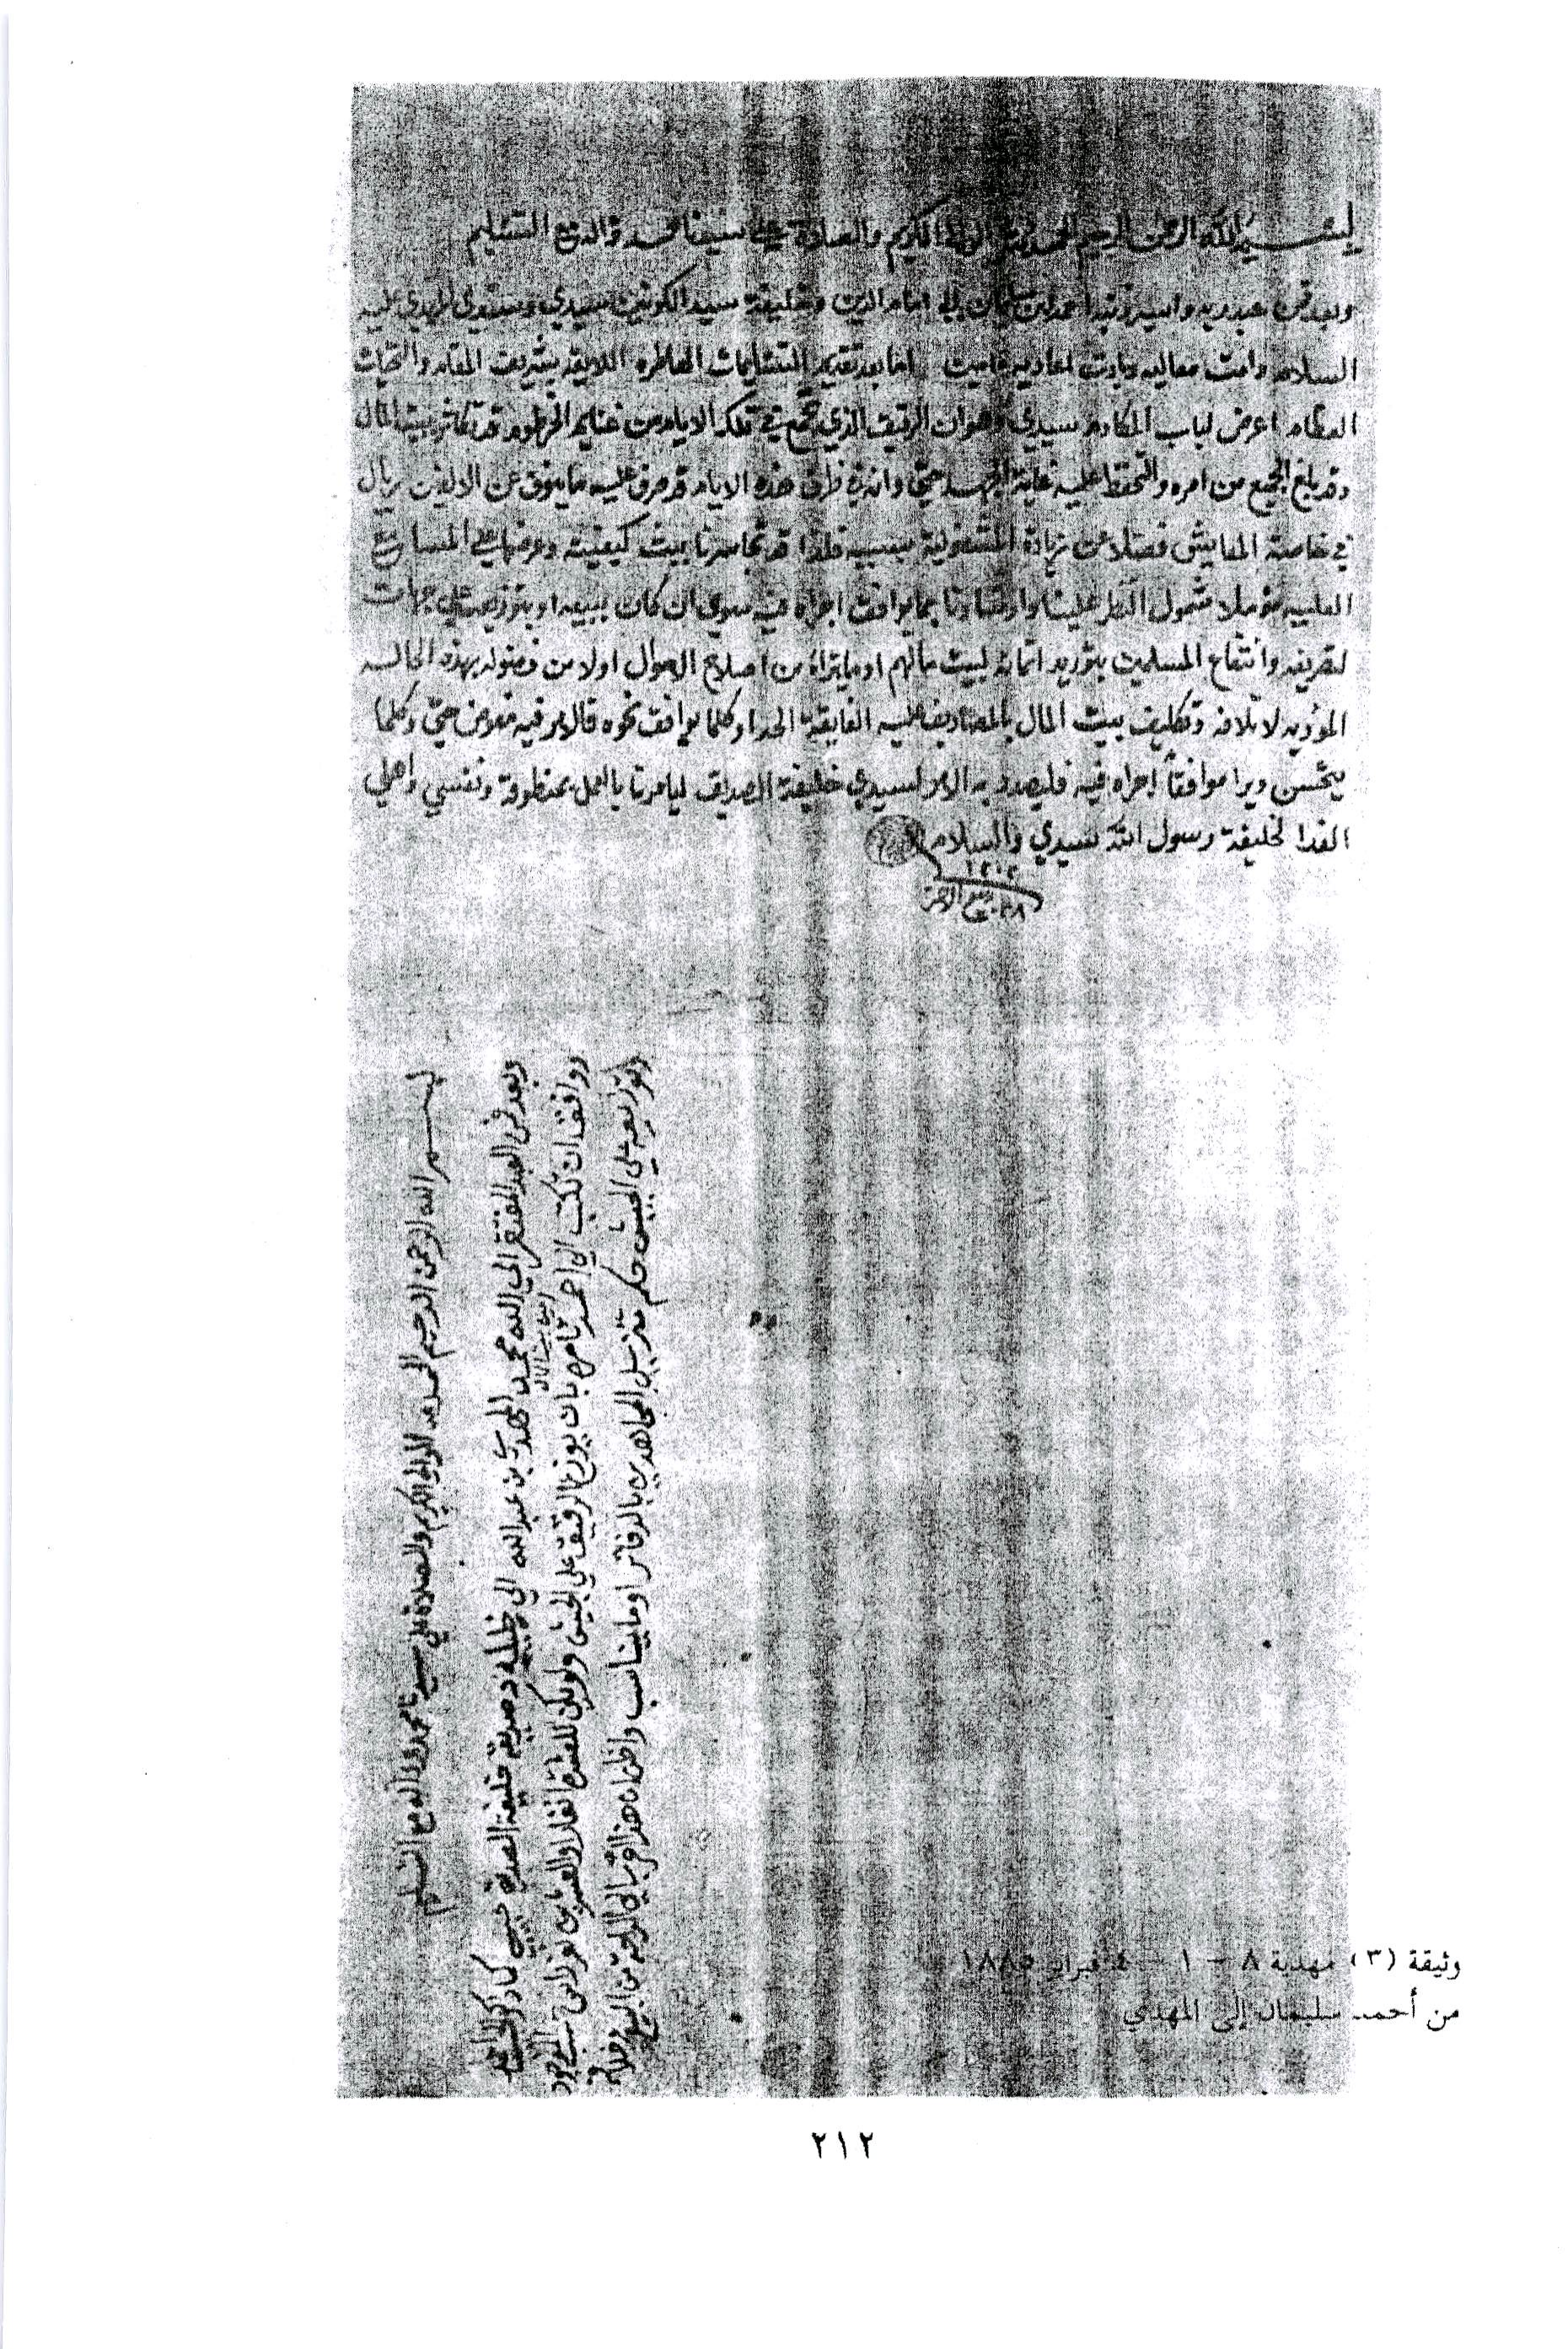 بسم الله الرحمن الرحيم الحمد لله الوالي الكريم والصلاة على سيدنا محمد واله مع التسليم
وبعد فمن عبد ربه واسير ذنبه احمد ابن سليمان الى امام الدين وخليفة سيد الكونين سيدي وسندي المهدي عليه
السلام دامت معاليه وبادت اعاديه امين اما بعد تقديم التسليمات العاطره اللايقه بشريف المقام والتحيات
العظام اعرض لباب المكارم سيدي هوان الرقيق الذي تجمع في تلك الايام من غنايم الخرطوم قد تكاثر ببيت المال
وقد بلغ الجميع من امره والتحفظ عليه غاية الجهد حتى وانه في ظرف هذه الايام قد صرف عليه ما ينوف عن الالفين ريال
في خاصة المعايش فضلا عن زيادة المشغولية بسببه فلذا قد تجاسرنا ببث كيفيته وعرضها على المسامع
العليه مؤملا شمول النظر علينا وارشادنا بما يوافق اجراه فيه سوى ان كان ببيعه او بتوزيعه على جهات
لتصريفه وانتفاع المسلمين بتوريد اتمانه لبيت مالهم او ما يتراا من اصلاح الاحوال اولا من وصوله بهذه الحاله
المؤديه لاتلافه وتكليف بيت المال بالمصاريف عليه الفايقة الحد او كلما يوافق نحوه فالامر فيه مفوض حتى وكلما
يتحسن ويرا موافقاً اجراه فيه فليصدر به الامر لسيدي خليفة الصديق ليامرنا بالعمل بمنطوقه ونفسي واهلي
الفدا لخليفة رسول الله سيدي والسلام
١٣٠٢
١٨ ربيع الاخر
بسم الله الرحمن الرحيم الحمد لله الوالي الكريم والصلاة على سيدنا محمد واله مع التسليم
وبعد فمن العبد المفتقر الى الله محمد المهدي بن عبد الله الى خليفته وصديقه خليفة الصديق حبيبي كما ذكر
امين بيت المال
ووافق ان تكتب الى احمد تامره بان يوزع الرقيق على الجيش ولو يكن للعشرة انفار او العشرين نفر
وتوزيعه على الجيش حكم تنزيل المجاهدين بالدفاتر او ما يناسب واظن ان هذا اقرب الى الراحة من البيع
وثيقة (٣) مهدية ٨ - ١ - ٤ فبراير ١٨٨٥
من أحمد سليمان إلى المهدي
٢١٢